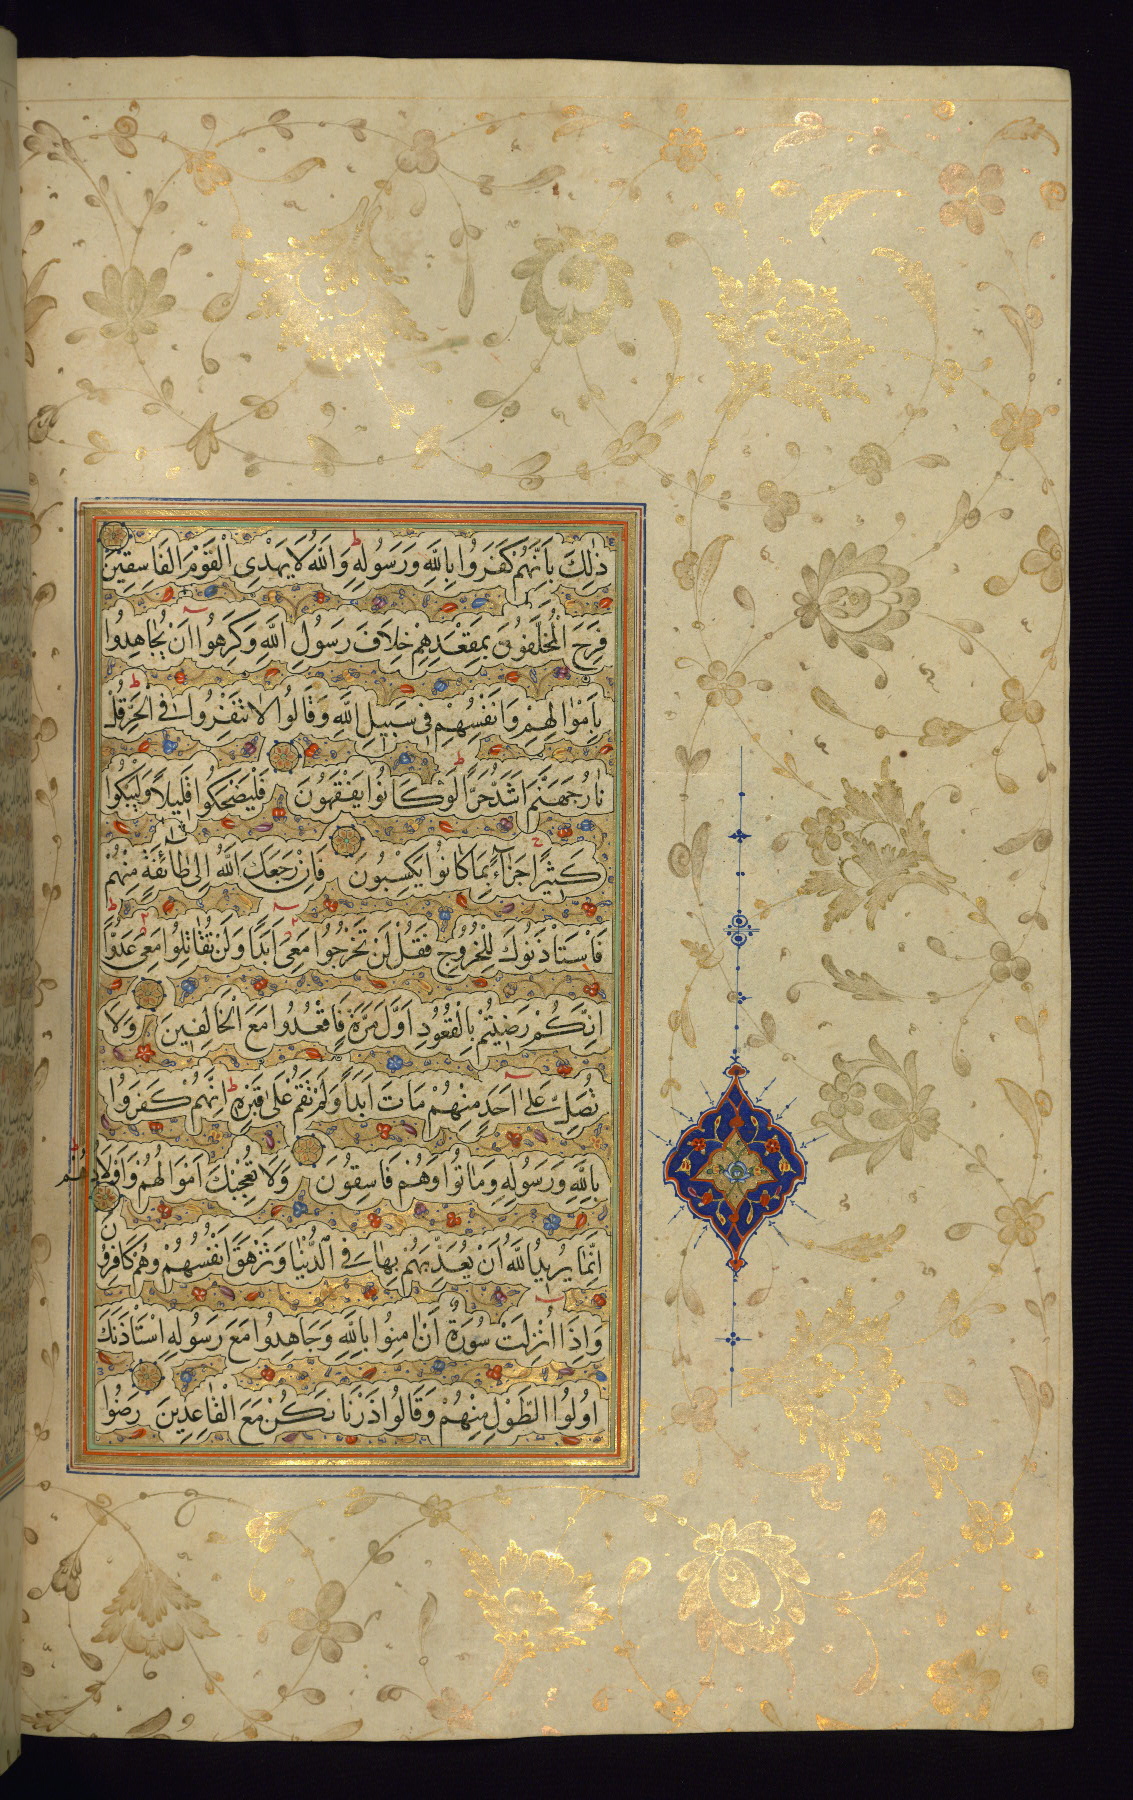 ذٰلِكَ بِاَنَّهُمْ كَفَرُوا بِاللّٰهِ وَرَسُولِهٖ وَاللّٰهُ لَا يَهْدِى الْقَوْمَ الْفَاسِقِينَ
فَرِحَ الْمُخَلَّفُونَ بِمَقْعَدِهِمْ خِلَافَ رَسُولِ اللّٰهِ وَكَرِهُوا اَنْ يُجَاهِدُوا
بِاَمْوٰالِهِمْ وَاَنْفُسِهِمْ فِى سَبِيلِ اللّٰهِ وَقَالُوا لَا تَنْفِرُوا فِى الْحَرِّ قُلْ
نَارُ جَهَنَّمَ اَشَدُّ حَرًّا لَوْ كَانُوا يَفْقَهُونَ فَلْيَضْحَكُوا قَلِيلًا وَلْيَبْكُوا
كَثِيرًا جَزَآءً بِمَا كَانُوا يَكْسِبُونَ فَاِنْ رَجَعَكَ اللّٰهُ اِلىٰ طَائِفَةٍ مِنْهُمْ
فَاسْتَاْذَنُوكَ لِلْخُرُوجِ فَقُلْ لَنْ تَخْرُجُوا مَعِىَ اَبَدًا وَلَنْ تُقَاتِلُوا مَعِىَ عَدُوًّا
اِنَّكُمْ رَضِيتُمْ بِالْقُعُودِ اَوَّلَ مَرَّةٍ فَاقْعُدُوا مَعَ الْخَالِفِينَ وَلَا
تُصَلِّ عَلىٰ اَحَدٍ مِنْهُمْ مَاتَ اَبَدًا وَلَا تَقُمْ عَلىٰ قَبْرِهٖ اِنَّهُمْ كَفَرُوا
بِاللّٰهِ وَرَسُولِهٖ وَمَاتُوا وَهُمْ فَاسِقُونَ وَلَا تُعْجِبْكَ اَمْوَالُهُمْ وَاَوْلَادُهُمْ
اِنَّمَا يُرِيدُ اللّٰهُ اَنْ يُعَذِّبَهُمْ بِهَا فِى الدُّنْيَا وَتَزْهَقَ اَنْفُسُهُمْ وَهُمْ كَافِرُونَ
وَاِذَا اُنْزِلَتْ سُورَةٌ اَنْ اٰمِنُوا بِاللّٰهِ وَجَاهِدُوا مَعَ رَسُولِهِ اسْتَاْذَنَكَ
اُولُوا الطَّوْلِ مِنْهُمْ وَقَالُوا ذَرْنَا نَكُنْ مَعَ الْقَاعِدِينَ رَضُوا